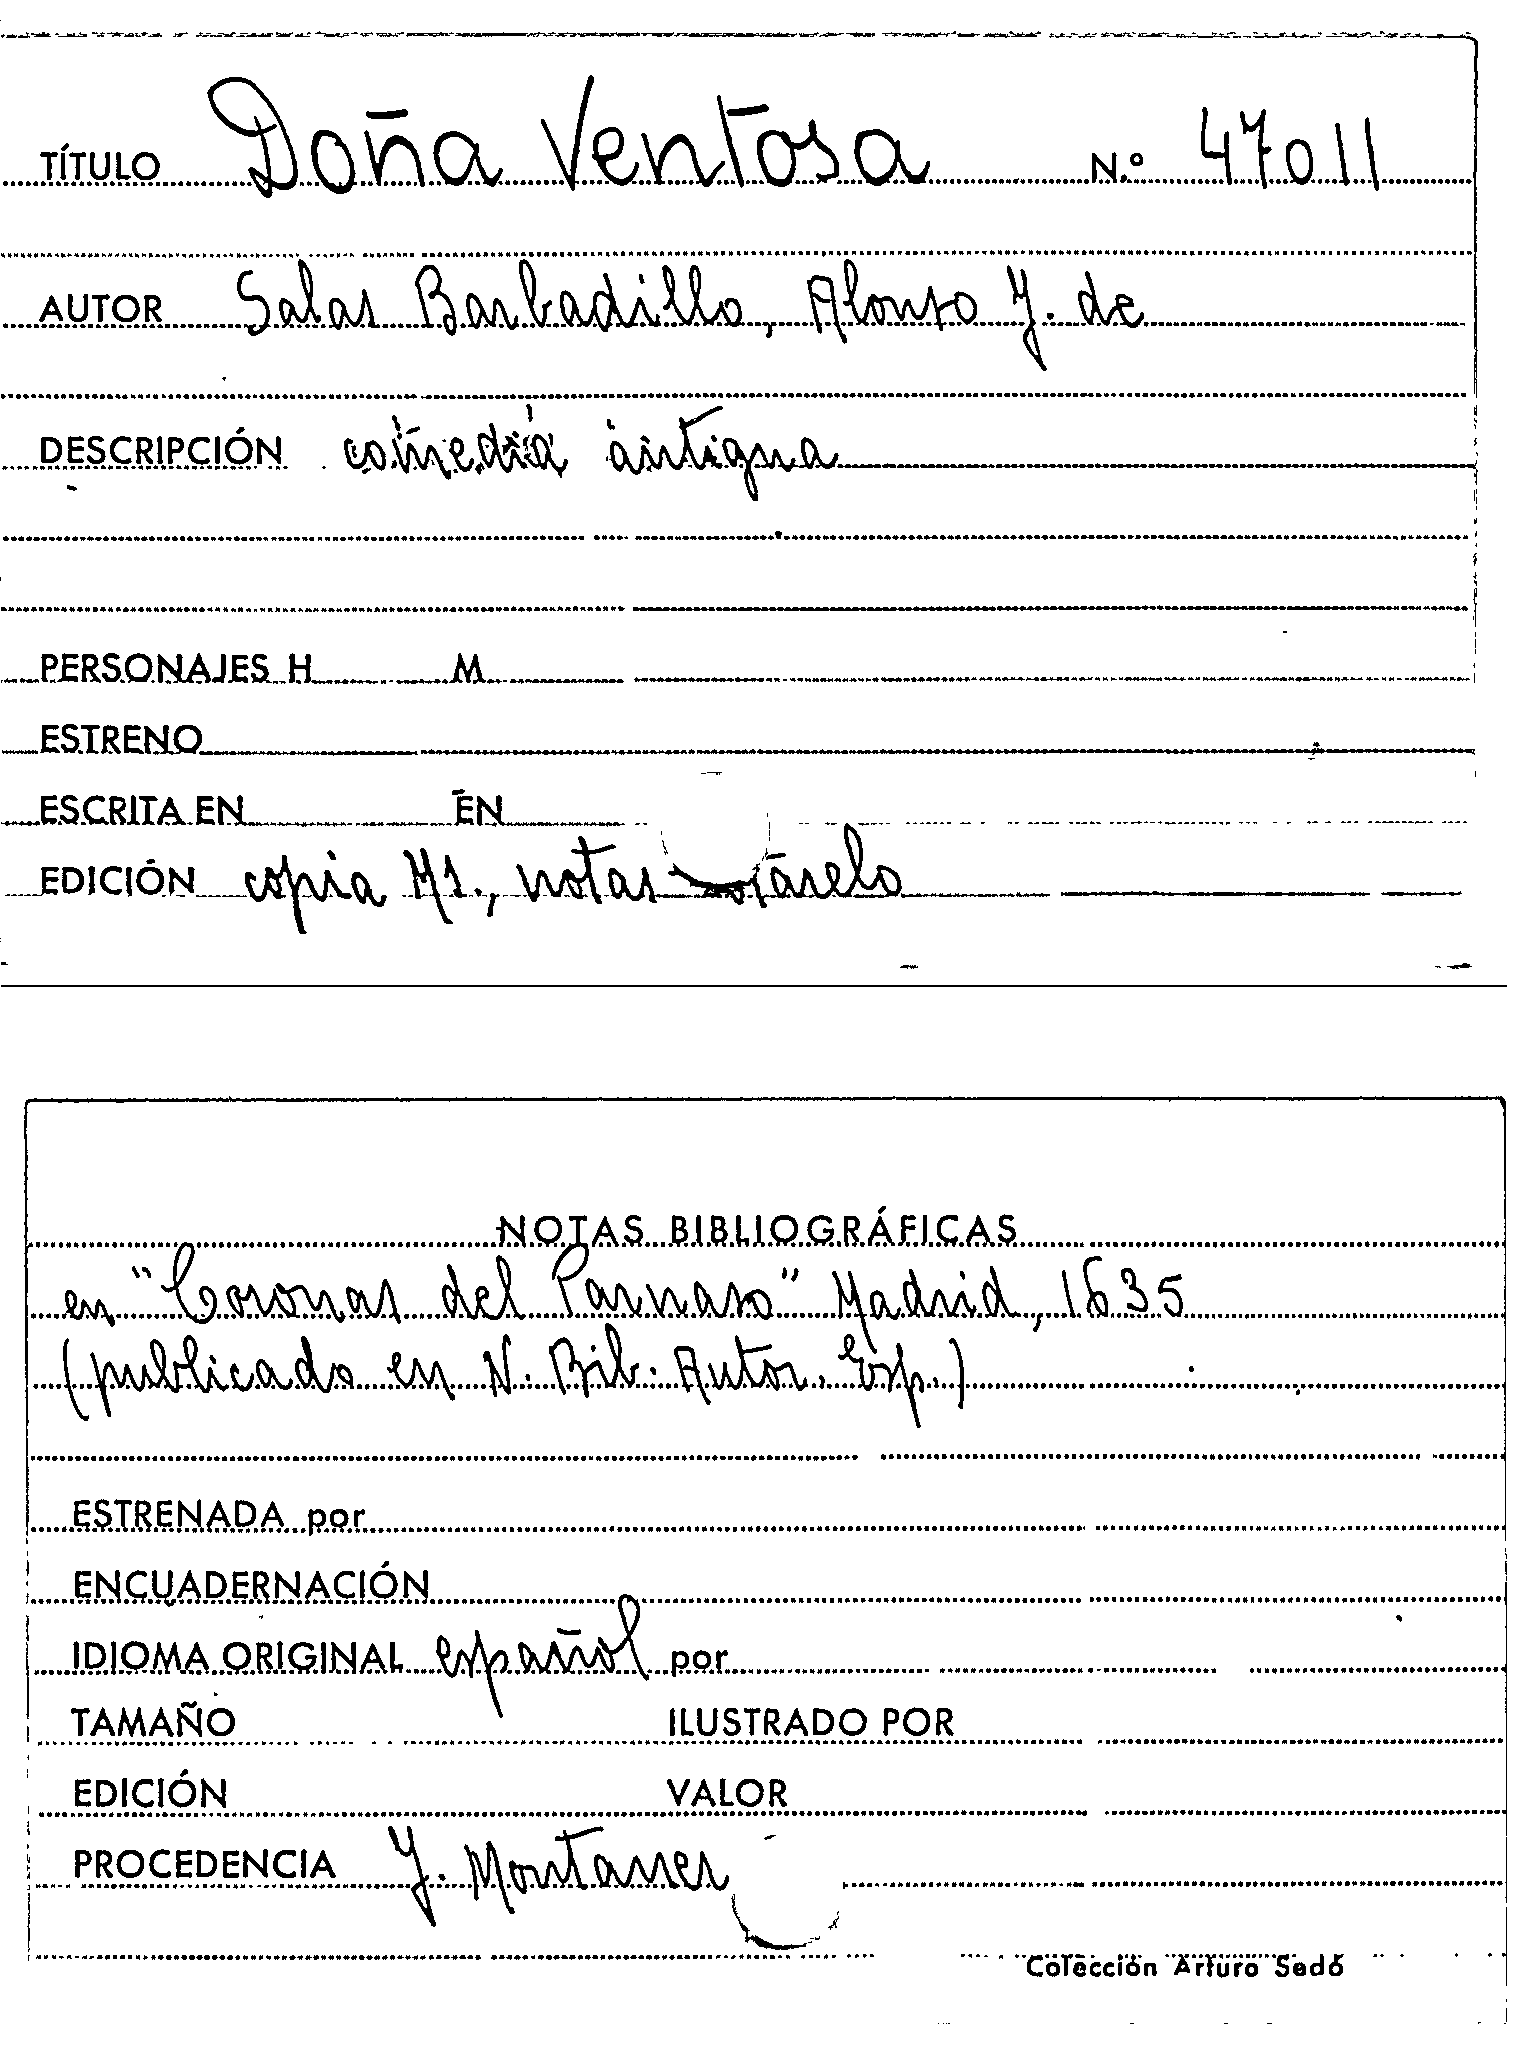 TÍTULO Doña Ventosa N.º 47011
AUTOR Salas Barbadillo, Alonso J. de
DESCRIPCIÓN comedia antigua
PERSONAJES H M
ESTRENO
ESCRITA EN EN
EDICIÓN copia Ms., notas
NOTAS BIBLIOGRÁFICAS
en "Coronas del Parnaso" Madrid, 1635
(publicado en N. Bib. Autor. Esp.)
ESTRENADA por
ENCUADERNACIÓN
IDIOMA ORIGINAL español por
TAMAÑO ILUSTRADO POR
EDICIÓN VALOR
PROCEDENCIA J. Montaner
Colección Arturo Sedó